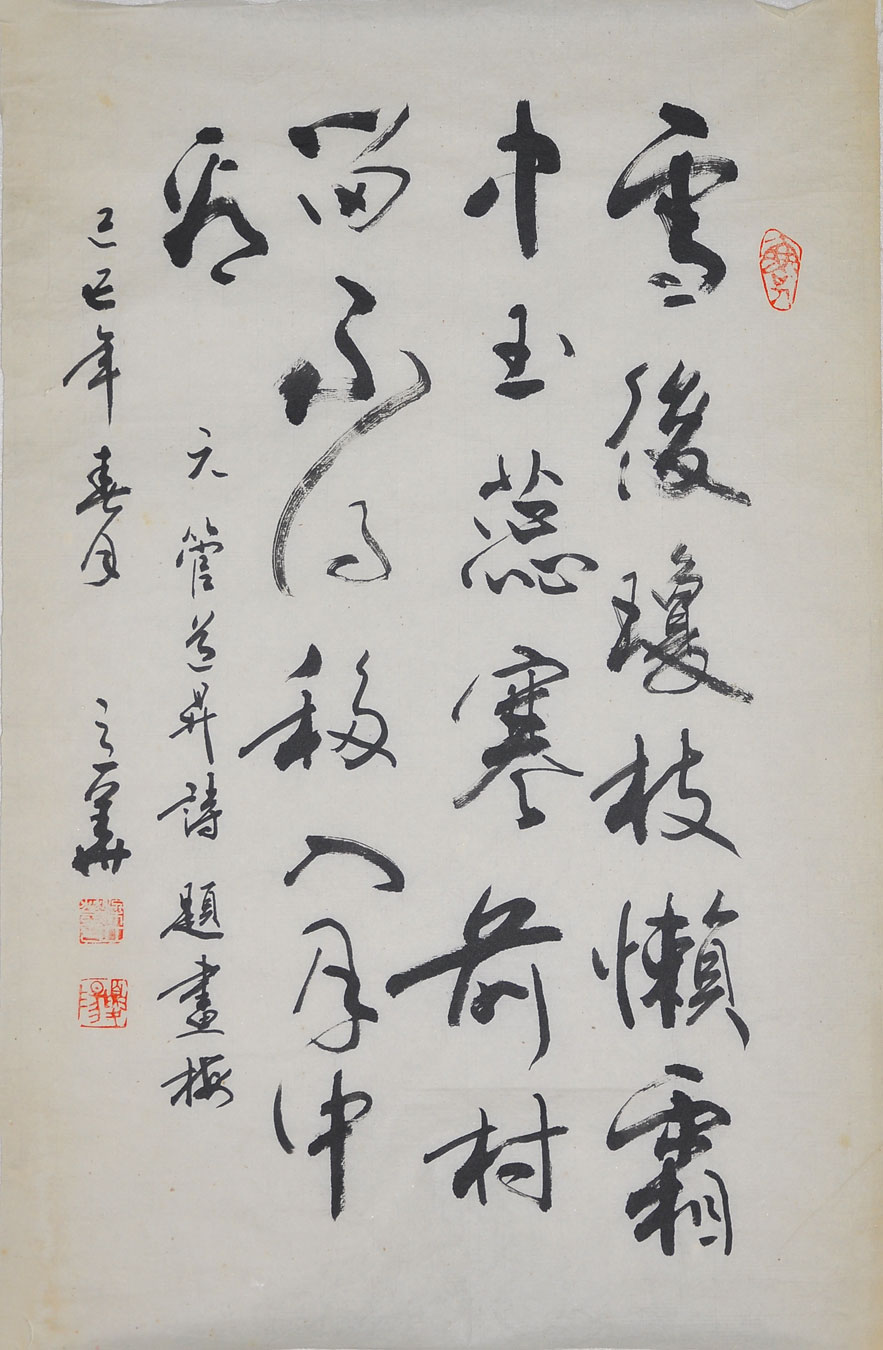 雪後瓊枝懶霜
中玉蕊寒前村
留不得移入月中
看
元管道昇詩題畫梅
己巳年春月